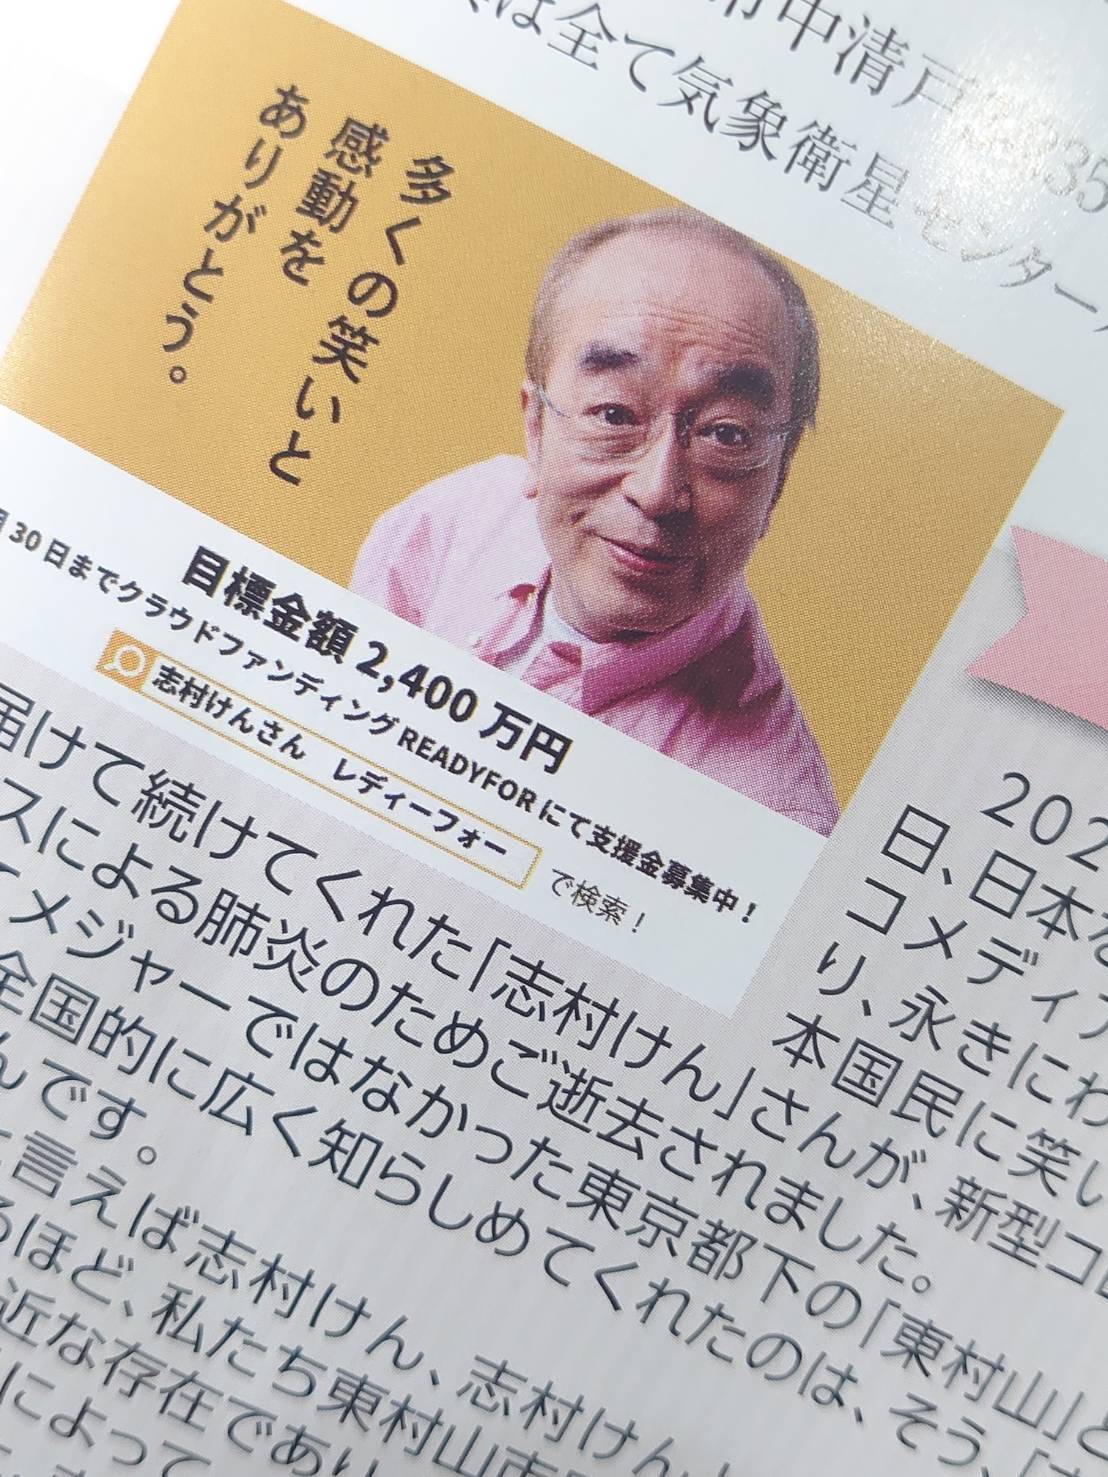 中清戸
は全て気象衛星センター
多くの笑いと
感動を
ありがとう。
目標金額 2,400 万円
30日までクラウドファンディング READYFOR にて支援金募集中！
志村けんさん レディーフォー で検索！
202
日、日本
コメディ
り、永きにわ
本国民に笑い
届けて続けてくれた「志村けん」さんが、新型コロ
スによる肺炎のためご逝去されました。
メジャーではなかった東京都下の「東村山」と
全国的に広く知らしめてくれたのは、そう、「
んです。
言えば志村けん、志村けん
るほど、私たち東村山市
近な存在であり
によって